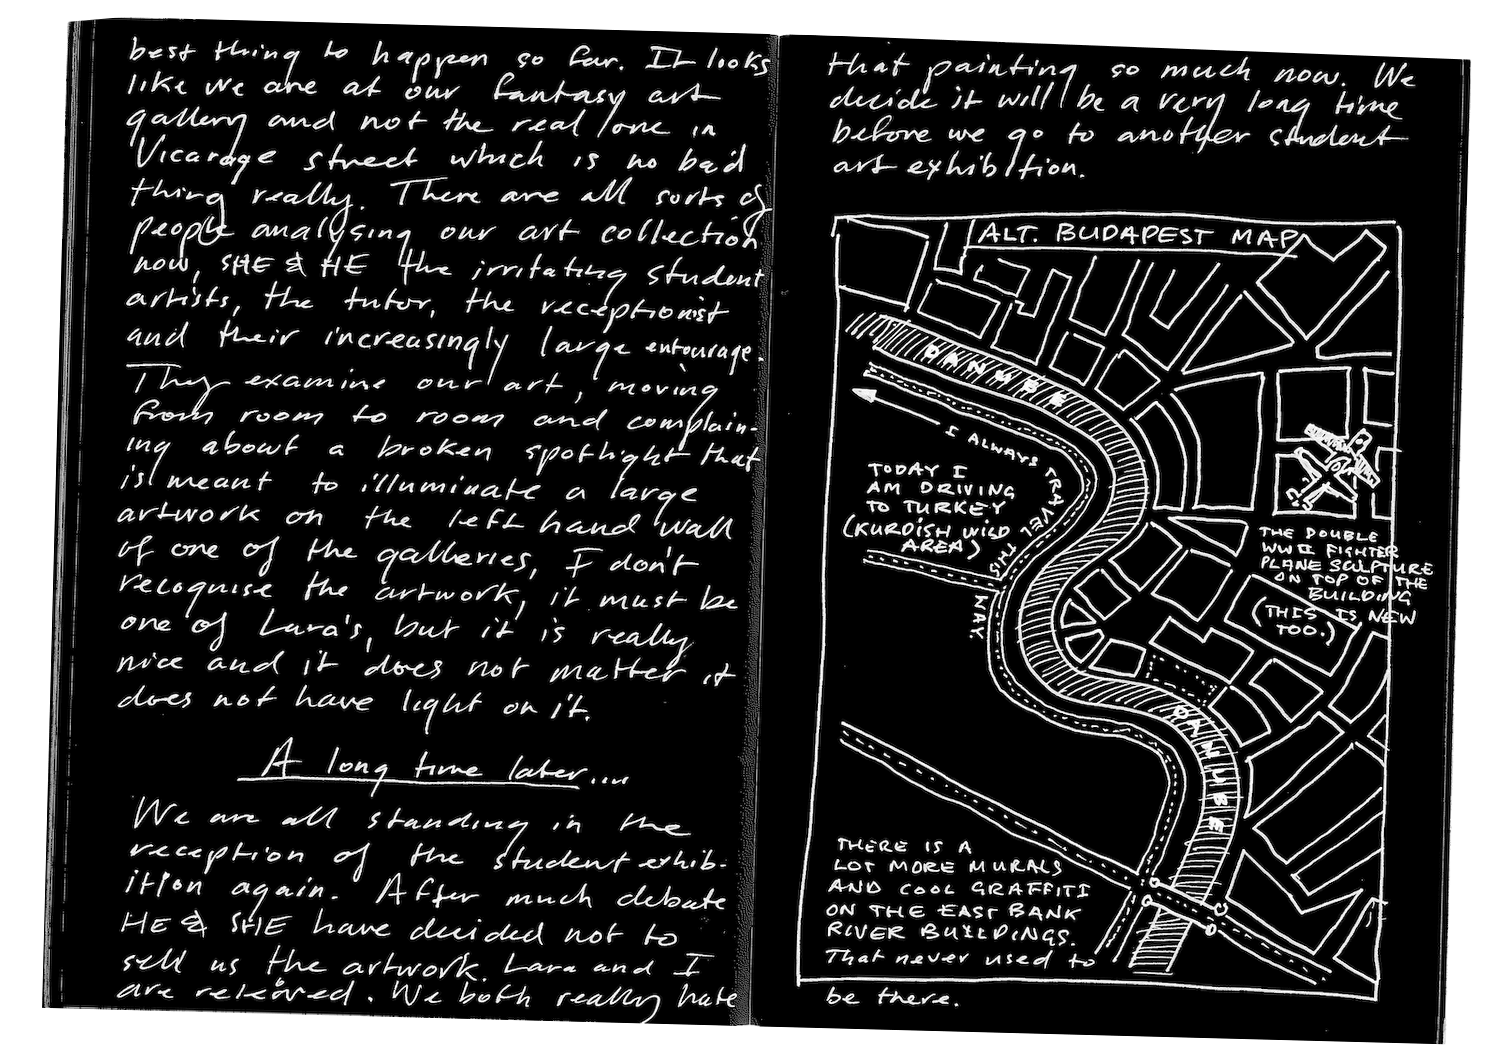 best thing to happen so far. It looks
like we are at our fantasy art
gallery and not the real one in
Vicarage street which is no bad
thing really. There are all sorts of
people analysing our art collection
now, SHE & HE the irritating student
artists, the tutor, the receptionist
and their increasingly large entourage.
They examine our art, moving
from room to room and complain-
ing about a broken spotlight that
is meant to illuminate a large
artwork on the left hand wall
of one of the galleries, I don't
recognise the artwork, it must be
one of Lara's, but it is really
nice and it does not matter it
does not have light on it.
A long time later....
We are all standing in the
reception of the student exhib-
ition again. After much debate
HE & SHE have decided not to
sell us the artwork. Lara and I
are released. We both really hate
that painting so much now. We
decide it will be a very long time
before we go to another student
art exhibition.
ALT. BUDAPEST MAP
DANUBE
I ALWAYS TRAVEL THIS WAY
TODAY I
AM DRIVING
TO TURKEY
(KURDISH WILD
AREA)
THE DOUBLE
WW II FIGHTER
PLANE SCULPTURE
ON TOP OF THE
BUILDING
(THIS IS NEW
TOO.)
DANUBE
THERE IS A
LOT MORE MURALS
AND COOL GRAFFITI
ON THE EAST BANK
RIVER BUILDINGS.
That never used to
be there.